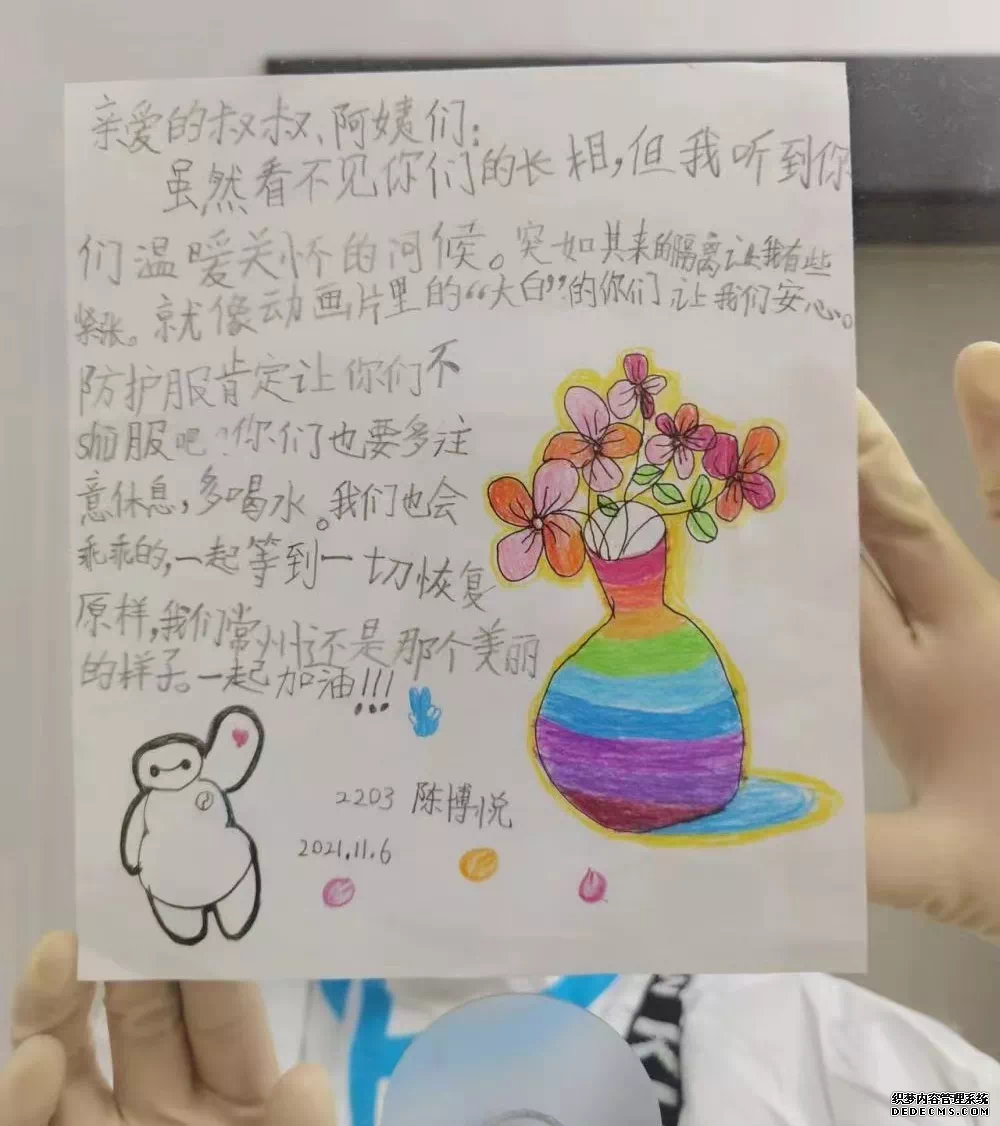 亲爱的叔叔、阿姨们：
虽然看不见你们的长相，但我听到你
们温暖关怀的问候。突如其来的隔离让我有些
紧张。就像动画片里的“大白”的你们让我们安心。
防护服肯定让你们不
shū服吧？你们也要多注
意休息，多喝水。我们也会
乖乖的，一起等到一切恢复
原样，我们常州还是那个美丽
的样子。一起加油!!!
2203 陈博悦
2021.11.6
织梦内容管理系统
DEDECMS.COM